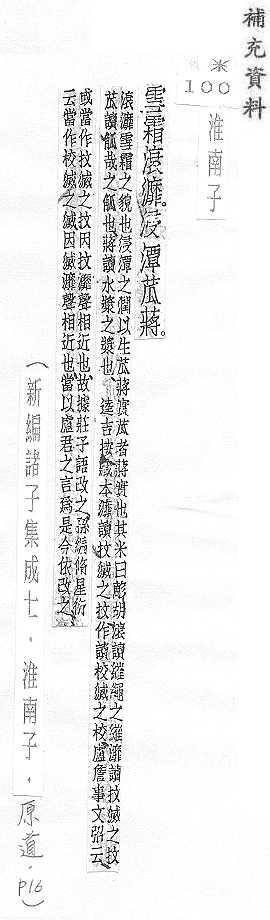 補充資料
※
100
淮南子
雪霜滾灖。浸潭苽蔣。
滾灖雪霜之貌也浸潭之潤以生苽蔣實苽者蔣實也其米曰彫胡滾讀維繩之維灖讀抆滅之抆
苽讀觚哉之觚也蔣讀水漿之漿也 逵吉按藏本灖讀抆滅之抆作讀校滅之校盧詹事文弨云
或當作抆滅之抆因抆灖聲相近也故據莊子語改之孫編脩星衍
云當作校滅之滅因滅灖聲相近也當以盧君之言爲是今依改之
(新編諸子集成七.淮南子.原道.P16)